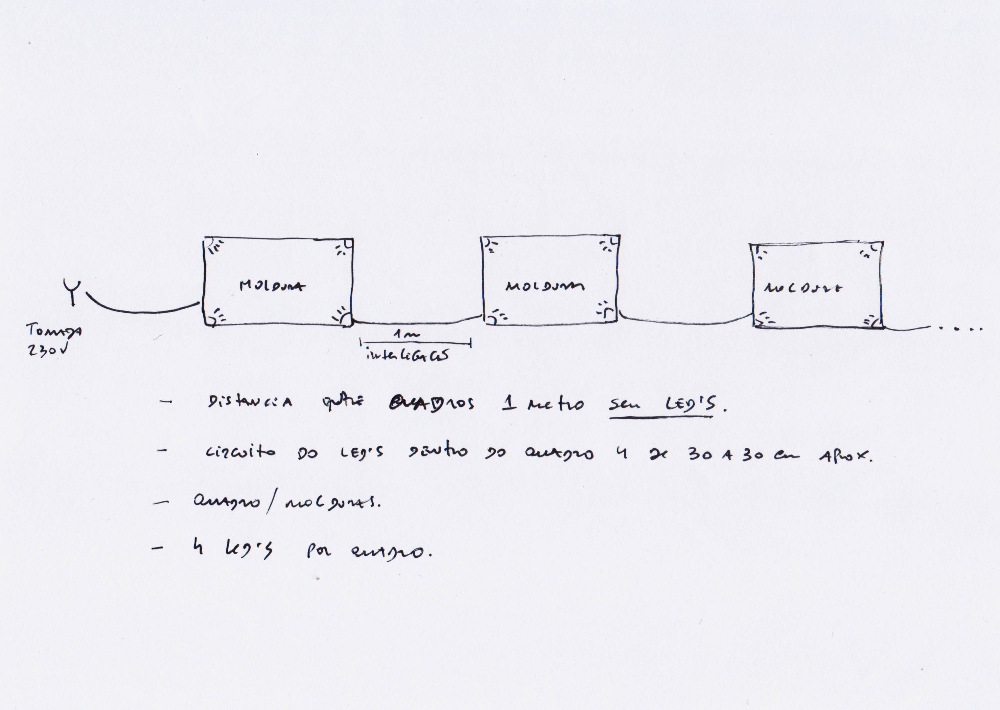 MOLDURA
MOLDURA
MOLDURA
TOMADA
230V
1m
interligação
- Distancia entre QUADROS 1 metro sem LED'S.
- circuito do LED'S dentro do quadro 4 de 30 a 30 cm aprox.
- QUADRO/MOLDURAS.
- 4 LED'S por quadro.